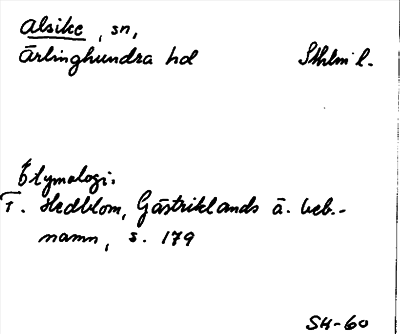 Alsike, sn,
Ärlinghundra hd Sthlm l.
Etymologi.
T. Hedblom, Gästriklands ä. beb.-
namn, s. 179
SH-60